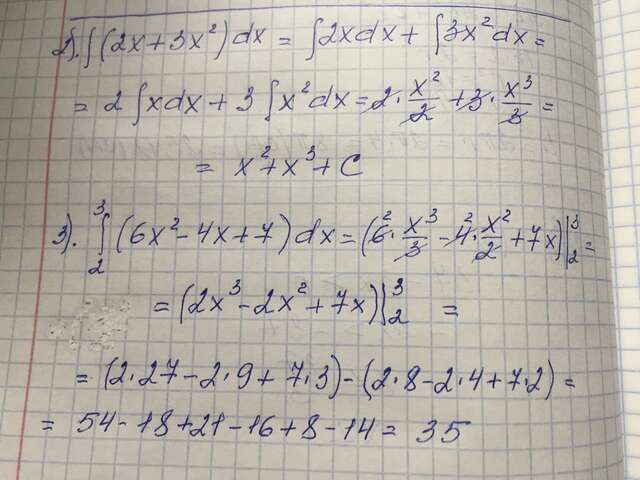 2). ∫(2x+3x²)dx = ∫2xdx + ∫3x²dx =
= 2∫xdx + 3∫x²dx = 2·x²/2 + 3·x³/3 =
= x²+x³+C
3). ∫₂³(6x²-4x+7)dx = (6²·x³/3 - 4²·x²/2 + 7x)|₂³ =
= (2x³-2x²+7x)|₂³ =
= (2·27-2·9+7·3)-(2·8-2·4+7·2) =
= 54-18+21-16+8-14 = 35